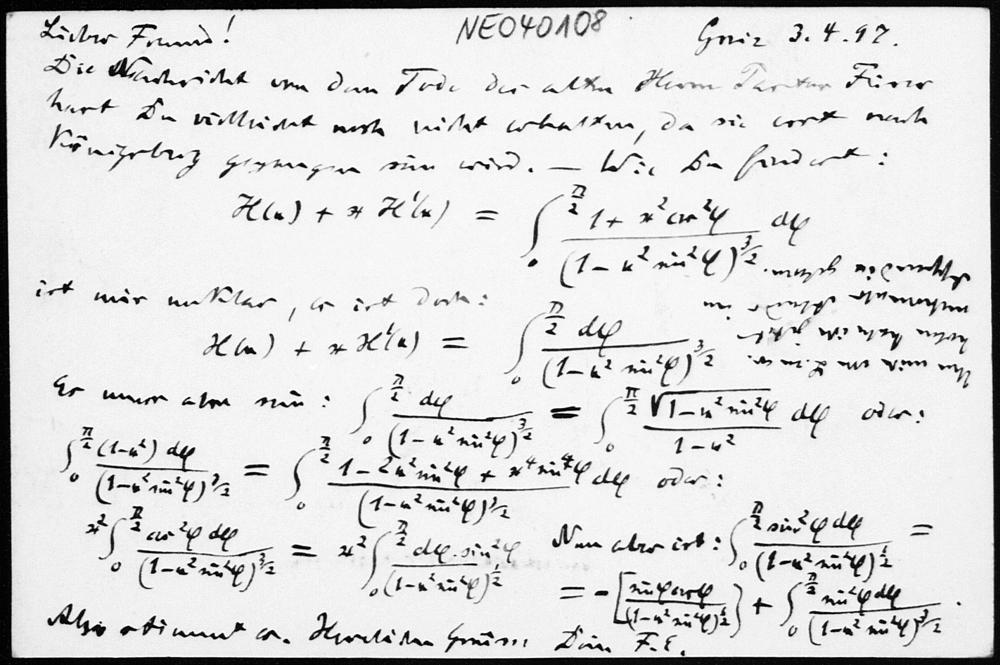 NE040108
Lieber Freund! Gaiz 3.4.97.
Die Nachricht von dem Tode des alten Herrn Pastor
hast Du vielleicht noch nicht erhalten, da sie erst nach
Königsberg gegangen sein wird. — Wie Du findest:
H(κ) + κ H'(κ) = ∫₀^{π/2} (1 + κ² cos²φ)/(1 − κ² sin²φ)^{3/2} dφ
ist mir unklar, es ist doch:
H(κ) + κ H'(κ) = ∫₀^{π/2} dφ/(1 − κ² sin²φ)^{3/2}
Es muss also sein: ∫₀^{π/2} dφ/(1 − κ² sin²φ)^{3/2} = ∫₀^{π/2} √(1 − κ² sin²φ)/(1 − κ²) dφ oder:
∫₀^{π/2} (1 − κ²) dφ/(1 − κ² sin²φ)^{3/2} = ∫₀^{π/2} (1 − 2κ² sin²φ + κ⁴ sin⁴φ)/(1 − κ² sin²φ)^{3/2} dφ oder:
κ² ∫₀^{π/2} cos²φ dφ/(1 − κ² sin²φ)^{3/2} = κ² ∫₀^{π/2} dφ · sin²φ/(1 − κ² sin²φ)^{1/2} Nun aber ist: ∫₀^{π/2} sin²φ dφ/(1 − κ² sin²φ)^{1/2} =
= −[sinφ cosφ/(1 − κ² sin²φ)^{1/2}] + ∫₀^{π/2} sin²φ dφ/(1 − κ² sin²φ)^{3/2}.
Also stimmt es. Herzlichen Gruss Dein F.E.